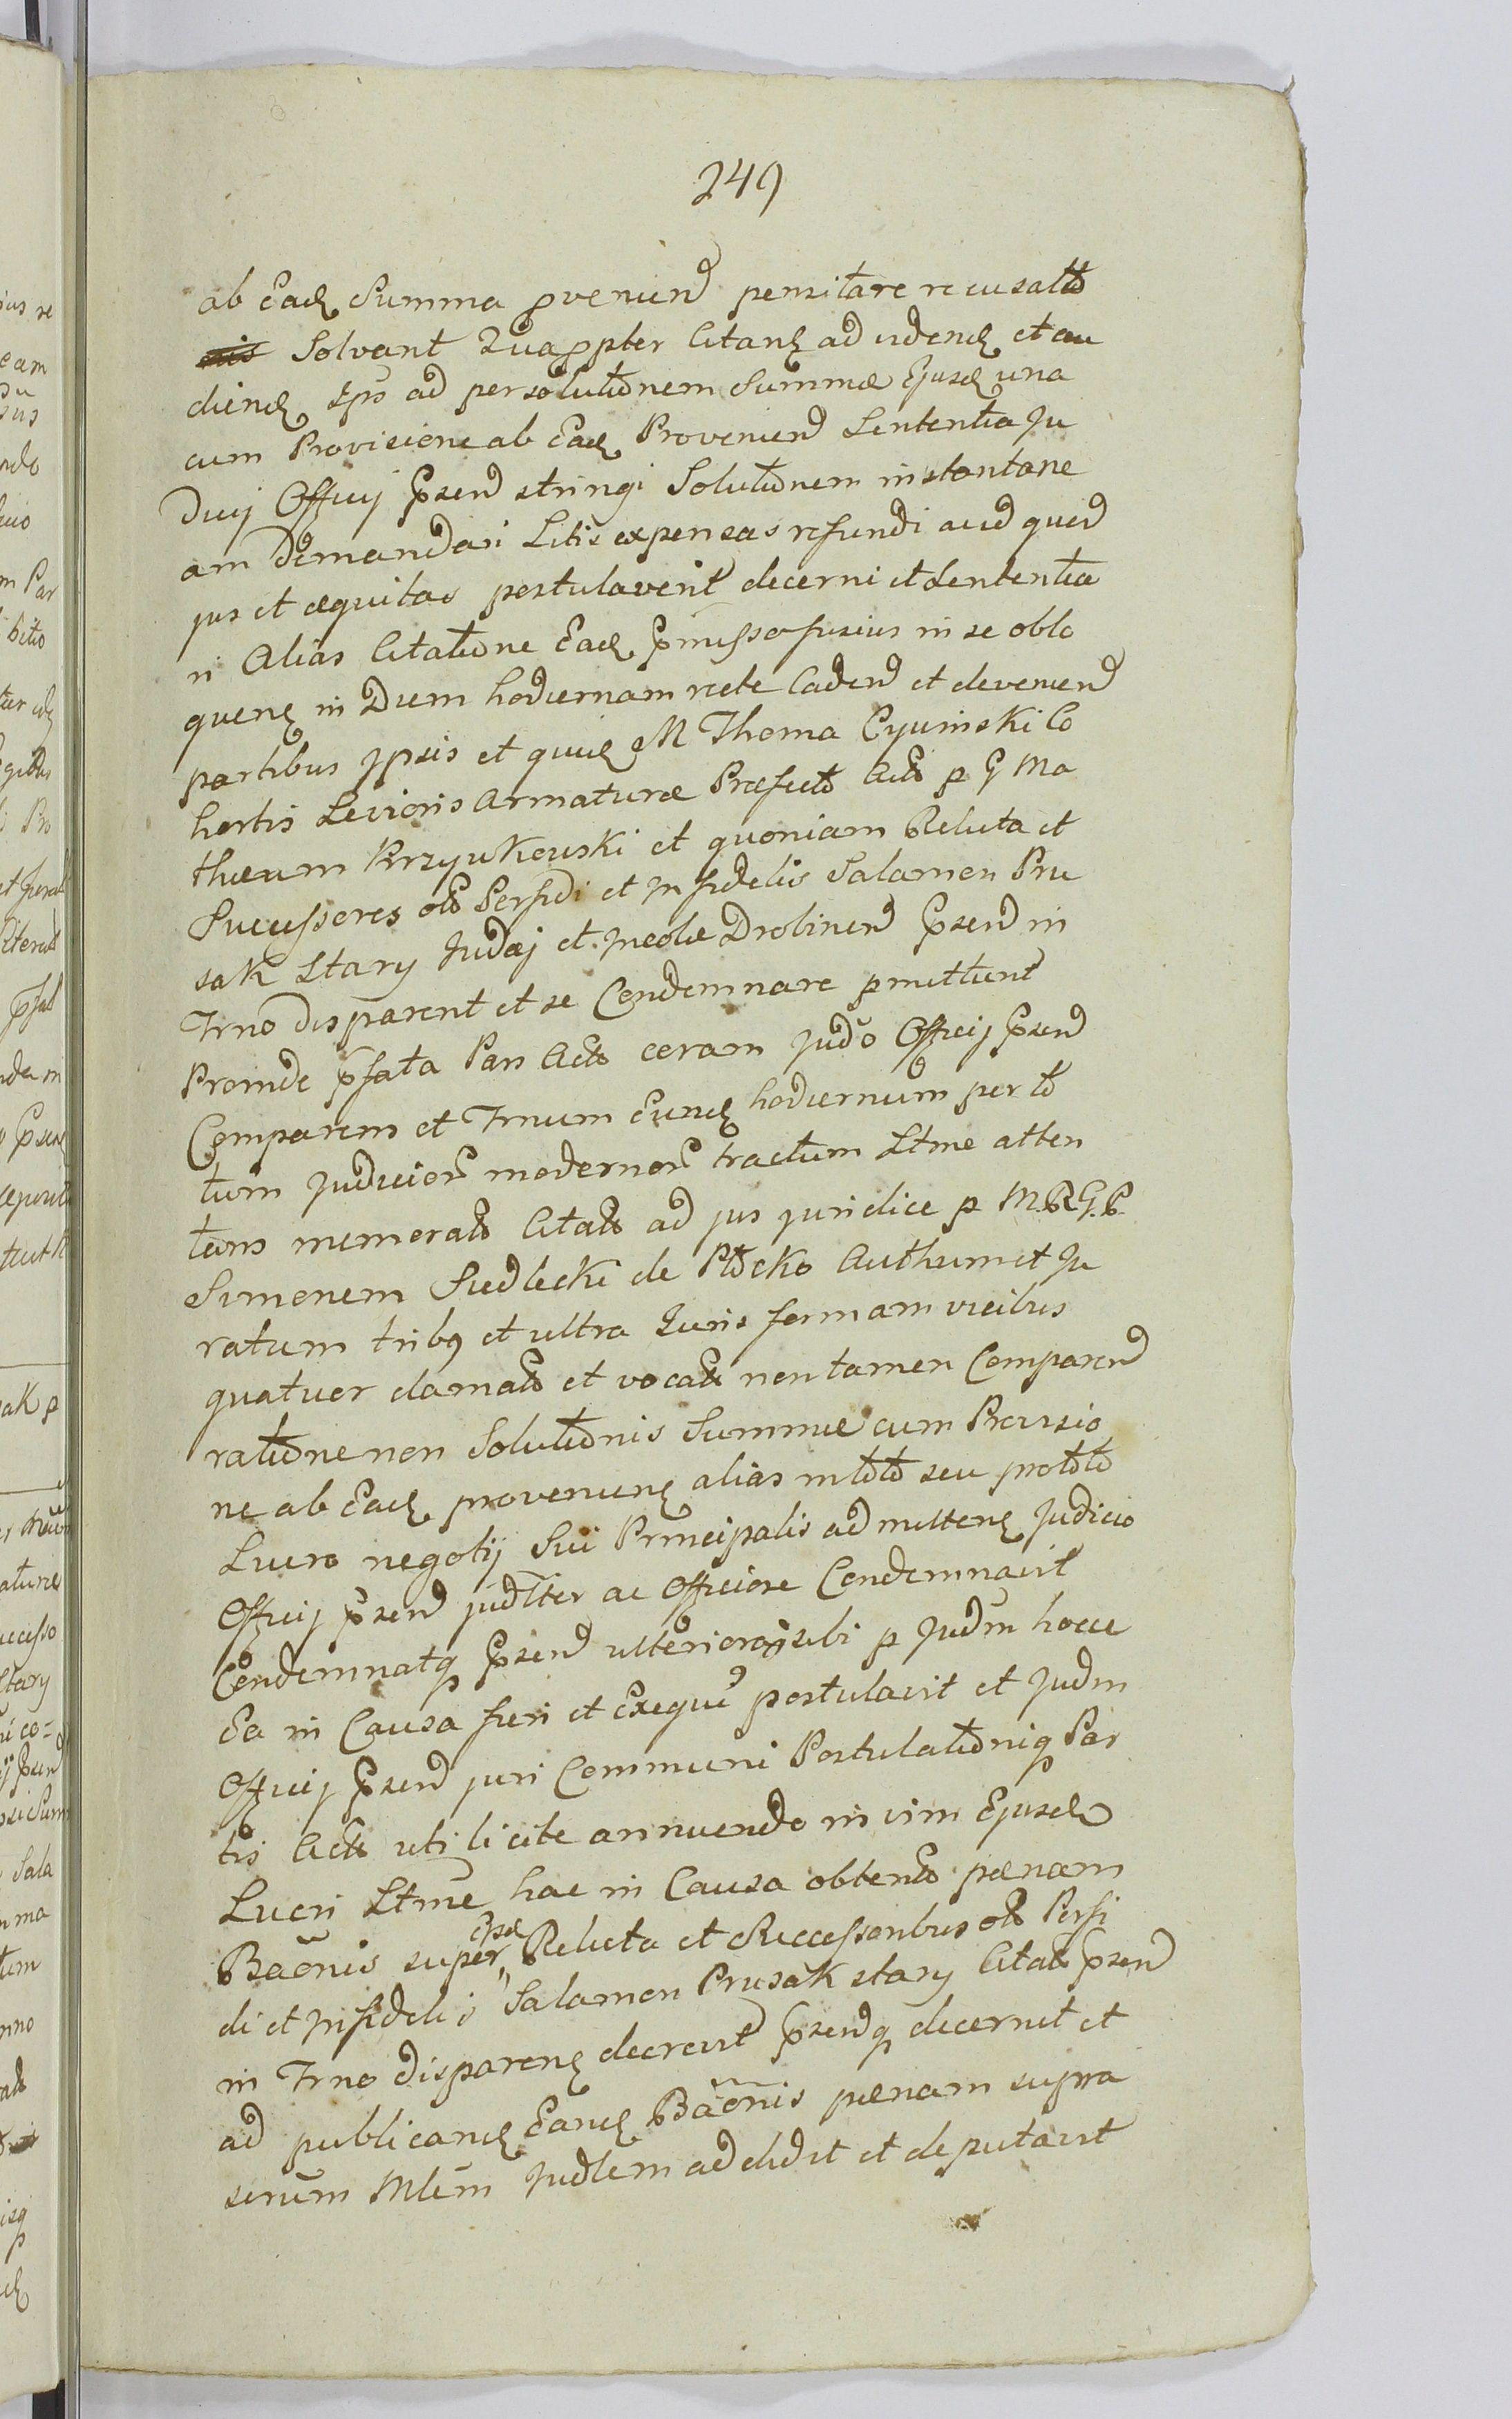 249
ab Eadq Summa pvenien pensitare recusatt
Solvant Quappter Citanq ad videnq et au
dienq Ips ad persolutionem Summæ Ejusq una
cum Provisione ab Eadq Provenien Sententia Ju
dicij Officij Psen stringi Solutionem instantane
am demandari Litis expensas refundi aud quid
jus et æquitas postulaverit decerni et Sententia
ri Alias Citatione Eadq Pmissa fusius in se oblo
quenq in Diem hodiernam recte Caden et devenien
partibus Ipsis et quidq M Thoma Cywinski Co
hortis Levioris Armaturæ Præfecto Acto p G Ma
thæum Krzyukowski et quoniam Relicta et
Successores olo Perfidi et Infidelis Salamon Pru
sak Stary Judæj et Incolæ Drobinen Psen in
Trno disparent et se Condemnare pmittunt
Proinde Pfata Pars Acto coram Judo Officij Psen
Comparens et Trnum Eunq hodiernum per to
tum Judicior modernor tractum Ltme atten
tans memorato Citato ad jus juridice p M.R.G.P.
Simonem Siedlecki de Plocko Authum et Ju
ratum tribq et ultra Juris formam vicibus
quatuor clamato et vocato non tamen Comparen
ratione non Solutionis Summæ cum Provisio
ne ab Eadq provenienq alias in toto seu pro toto
Lucro negotij Sui Principalis admittenq Judicio
Officij Psen judlter ac Officiose Condemnavit
Condemnatq Psen ulterioraq sibi p Judm hocce
Ea in Causa fieri et Exequi postulavit et Judm
Officij Psen juri Communi Postulationiq Par
tis Acto uti licite annuendo in vim Ejusd
Lucri Ltme hac in Causa obtento pænam
Baonis super Epsd Relicta et Successoribus olo Perfi
di et Infidelis Salamon Prusak stary Citato Psen
in Trno disparenq decrevit Psenq decernit et
ad publicanq Eanq Baonis pænam supra
scrium Mlem Judlem addidit et deputavit